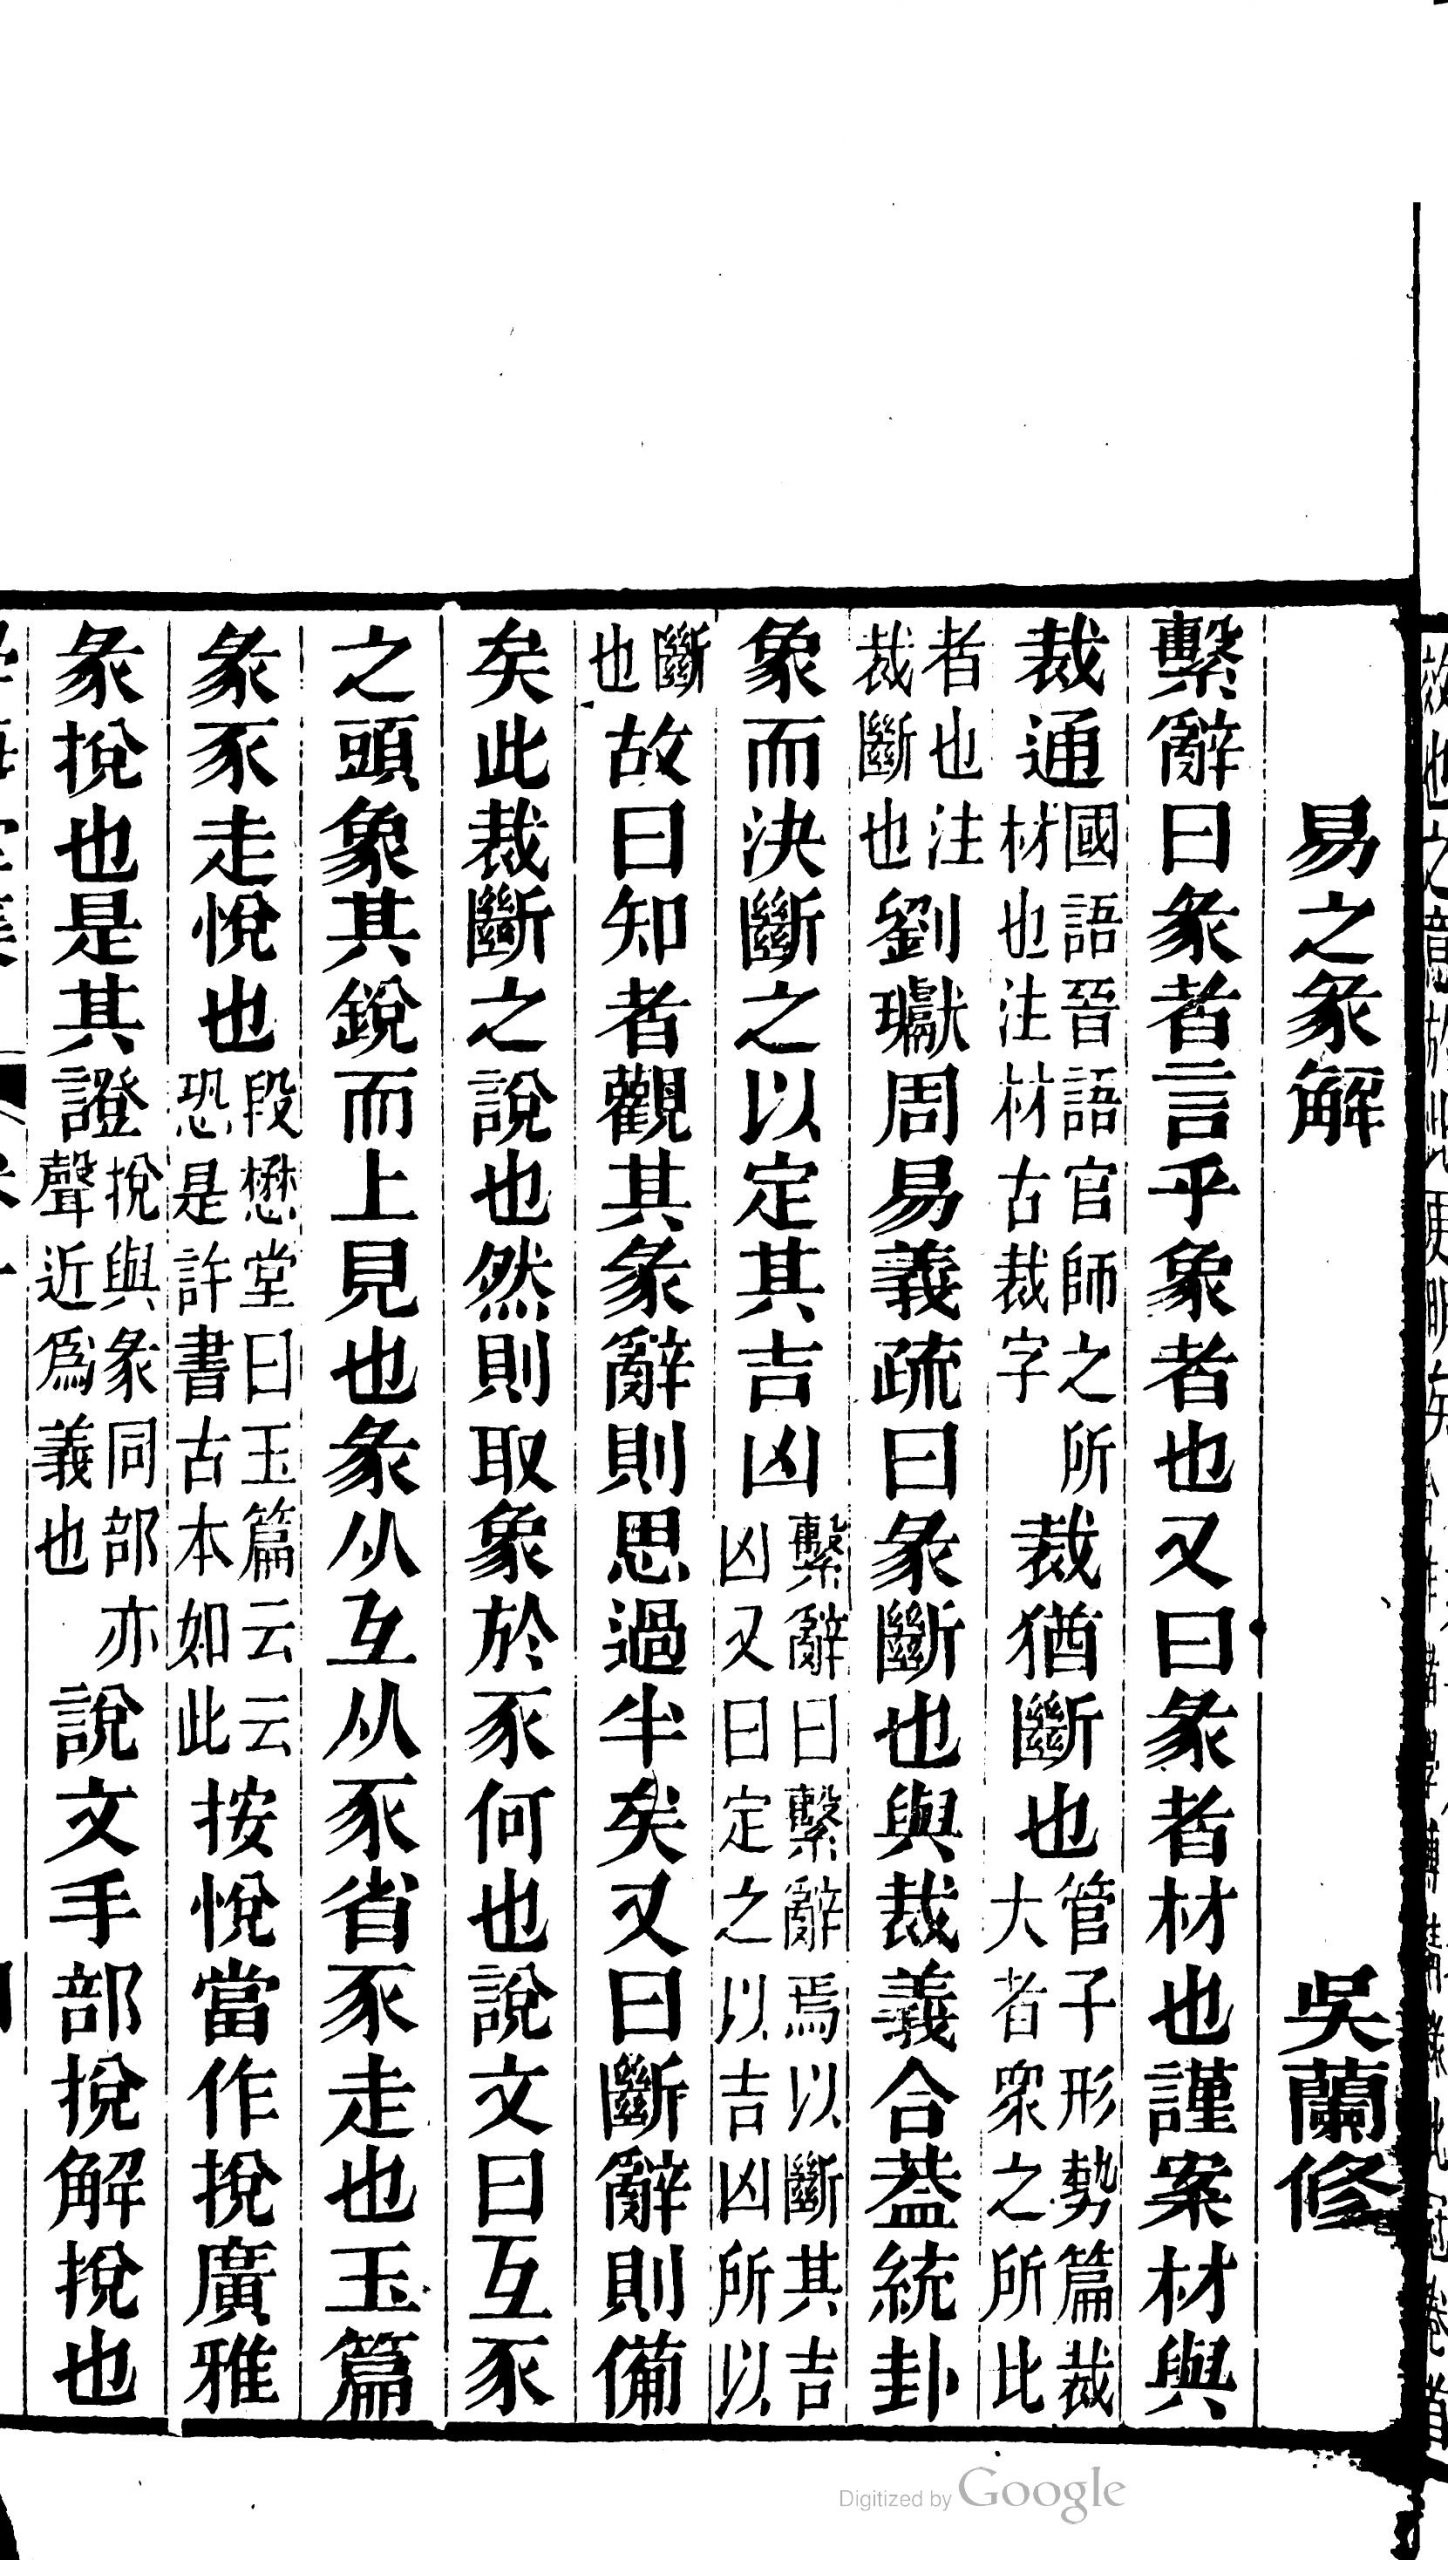 易之彖解 吳蘭修
繫辭曰彖者言乎象者也又曰彖者材也謹案材與
裁通國語晉語官師之所材也注材古裁字裁猶斷也管子形勢篇裁大者衆之所比
者也注裁斷也劉瓛周易義疏曰彖斷也與裁義合葢統卦
象而決斷之以定其吉凶繫辭曰繫辭焉以斷其吉凶又曰定之以吉凶所以
斷也故曰知者觀其彖辭則思過半矣又曰斷辭則備
矣此裁斷之說也然則取象於豕何也說文曰彑豕
之頭象其銳而上見也彖从彑从豕省豕走也玉篇
彖豕走悅也段懋堂曰玉篇云云恐是許書古本如此按悅當作挩廣雅
彖挩也是其證挩與彖同部亦聲近爲義也說文手部挩解挩也
Digitized by Google